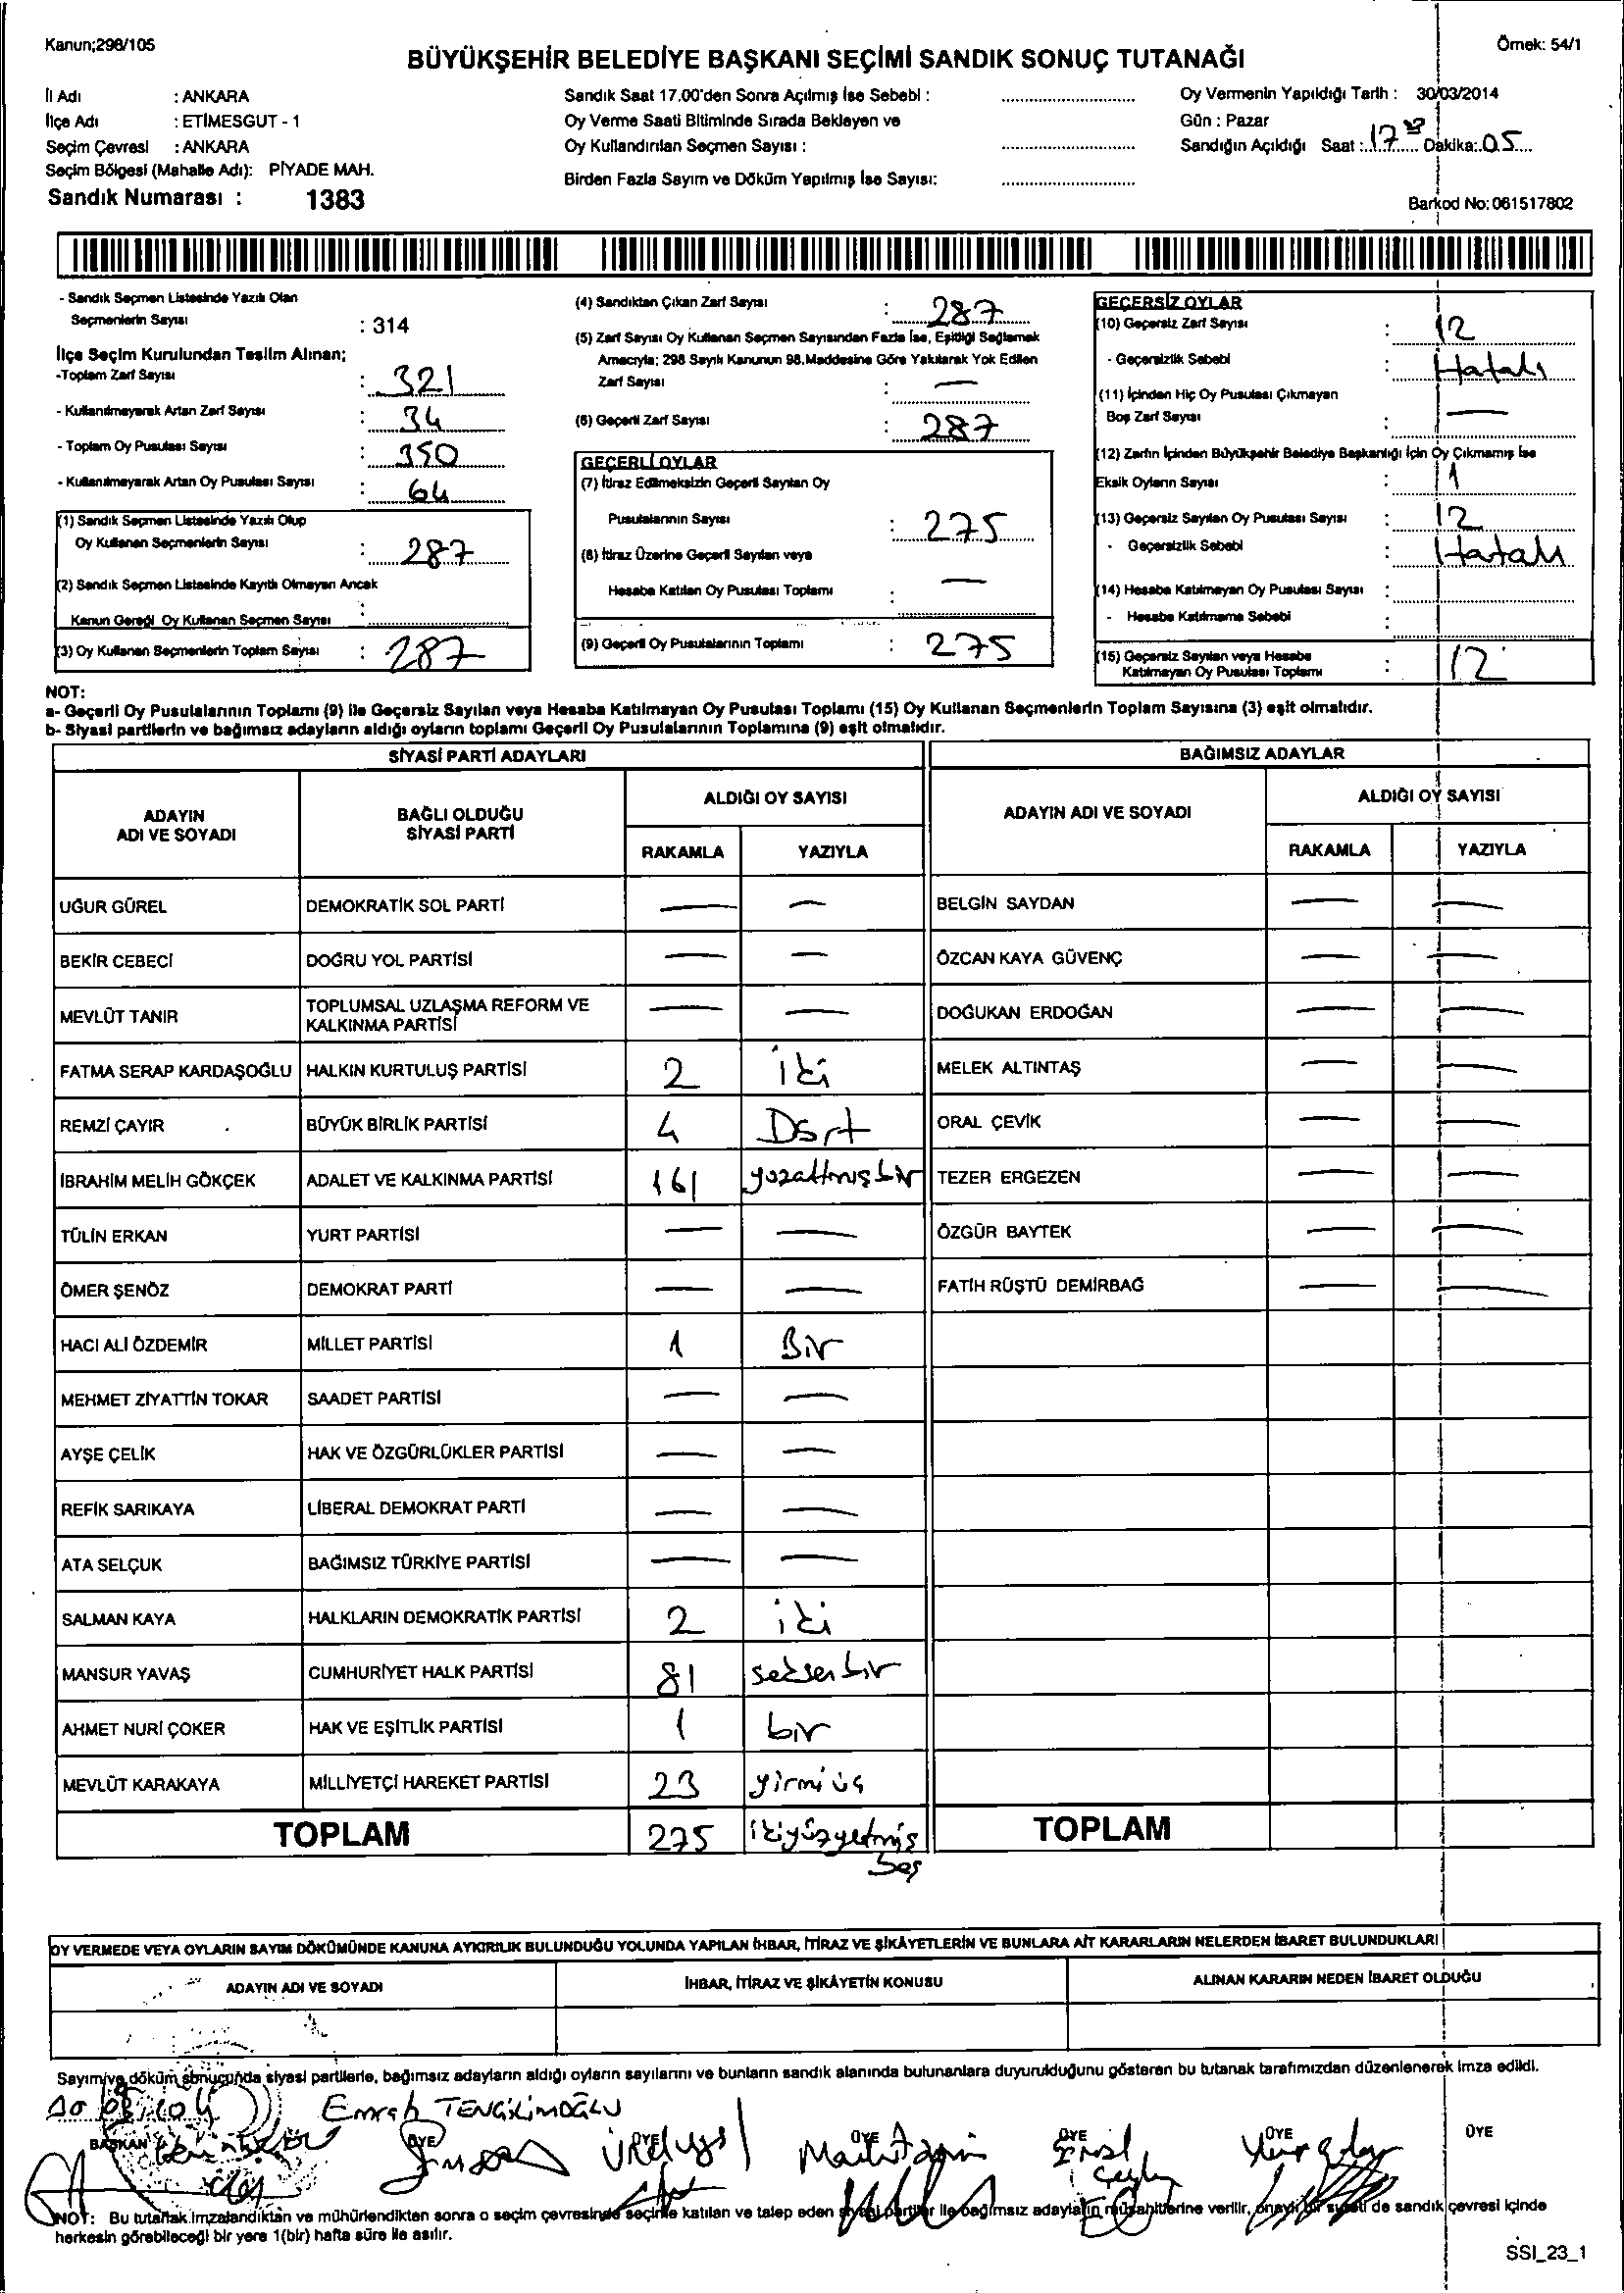 Kanun;298/105
Örnek: 54/1
BÜYÜKŞEHİR BELEDİYE BAŞKANI SEÇİMİ SANDIK SONUÇ TUTANAĞI
İl Adı : ANKARA
İlçe Adı : ETİMESGUT - 1
Seçim Çevresi : ANKARA
Seçim Bölgesi (Mahalle Adı): PİYADE MAH.
Sandık Numarası : 1383
Sandık Saat 17.00'den Sonra Açılmış İse Sebebi : ..........
Oy Verme Saati Bitiminde Sırada Bekleyen ve
Oy Kullandırılan Seçmen Sayısı : ..........
Birden Fazla Sayım ve Döküm Yapılmış İse Sayısı: ..........
Oy Vermenin Yapıldığı Tarih : 30/03/2014
Gün : Pazar
Sandığın Açıldığı Saat : 17 Dakika: 05
Barkod No: 061517802
- Sandık Seçmen Listesinde Yazılı Olan
Seçmenlerin Sayısı : 314
İlçe Seçim Kurulundan Teslim Alınan;
-Toplam Zarf Sayısı : 321
- Kullanılmayarak Artan Zarf Sayısı : 34
- Toplam Oy Pusulası Sayısı : 350
- Kullanılmayarak Artan Oy Pusulası Sayısı : 64
(1) Sandık Seçmen Listesinde Yazılı Olup
Oy Kullanan Seçmenlerin Sayısı : 287
(2) Sandık Seçmen Listesinde Kayıtlı Olmayan Ancak
Kanun Gereği Oy Kullanan Seçmen Sayısı :
(3) Oy Kullanan Seçmenlerin Toplam Sayısı : 287
(4) Sandıktan Çıkan Zarf Sayısı : 287
(5) Zarf Sayısı Oy Kullanan Seçmen Sayısından Fazla İse, Eşitliği Sağlamak
Amacıyla; 298 Sayılı Kanunun 98.Maddesine Göre Yakılarak Yok Edilen
Zarf Sayısı : —
(6) Geçerli Zarf Sayısı : 287
GEÇERLİ OYLAR
(7) İtiraz Edilmeksizin Geçerli Sayılan Oy
Pusulalarının Sayısı : 275
(8) İtiraz Üzerine Geçerli Sayılan veya
Hesaba Katılan Oy Pusulası Toplamı : —
(9) Geçerli Oy Pusulalarının Toplamı : 275
GEÇERSİZ OYLAR
(10) Geçersiz Zarf Sayısı : 12
- Geçersizlik Sebebi : Hatalı
(11) İçinden Hiç Oy Pusulası Çıkmayan
Boş Zarf Sayısı : —
(12) Zarfın İçinden Büyükşehir Belediye Başkanlığı İçin Oy Çıkmamış İse
Eksik Oyların Sayısı : 1
(13) Geçersiz Sayılan Oy Pusulası Sayısı : 12
- Geçersizlik Sebebi : Hatalı
(14) Hesaba Katılmayan Oy Pusulası Sayısı :
- Hesaba Katılmama Sebebi :
(15) Geçersiz Sayılan veya Hesaba
Katılmayan Oy Pusulası Toplamı : 12
NOT:
a- Geçerli Oy Pusulalarının Toplamı (9) ile Geçersiz Sayılan veya Hesaba Katılmayan Oy Pusulası Toplamı (15) Oy Kullanan Seçmenlerin Toplam Sayısına (3) eşit olmalıdır.
b- Siyasi partilerin ve bağımsız adayların aldığı oyların toplamı Geçerli Oy Pusulalarının Toplamına (9) eşit olmalıdır.
SİYASİ PARTİ ADAYLARI BAĞIMSIZ ADAYLAR
ADAYIN ADI VE SOYADI BAĞLI OLDUĞU SİYASİ PARTİ ALDIĞI OY SAYISI ADAYIN ADI VE SOYADI ALDIĞI OY SAYISI
RAKAMLA YAZIYLA RAKAMLA YAZIYLA
UĞUR GÜREL DEMOKRATİK SOL PARTİ — — BELGİN SAYDAN — —
BEKİR CEBECİ DOĞRU YOL PARTİSİ — — ÖZCAN KAYA GÜVENÇ — —
MEVLÜT TANIR TOPLUMSAL UZLAŞMA REFORM VE KALKINMA PARTİSİ — — DOĞUKAN ERDOĞAN — —
FATMA SERAP KARDAŞOĞLU HALKIN KURTULUŞ PARTİSİ 2 iki MELEK ALTINTAŞ — —
REMZİ ÇAYIR BÜYÜK BİRLİK PARTİSİ 4 Dört ORAL ÇEVİK — —
İBRAHİM MELİH GÖKÇEK ADALET VE KALKINMA PARTİSİ 161 yüzaltmışbir TEZER ERGEZEN — —
TÜLİN ERKAN YURT PARTİSİ — — ÖZGÜR BAYTEK — —
ÖMER ŞENÖZ DEMOKRAT PARTİ — — FATİH RÜŞTÜ DEMİRBAĞ — —
HACI ALİ ÖZDEMİR MİLLET PARTİSİ 1 Bir
MEHMET ZİYATTİN TOKAR SAADET PARTİSİ — —
AYŞE ÇELİK HAK VE ÖZGÜRLÜKLER PARTİSİ — —
REFİK SARIKAYA LİBERAL DEMOKRAT PARTİ — —
ATA SELÇUK BAĞIMSIZ TÜRKİYE PARTİSİ — —
SALMAN KAYA HALKLARIN DEMOKRATİK PARTİSİ 2 iki
MANSUR YAVAŞ CUMHURİYET HALK PARTİSİ 81 seksen bir
AHMET NURİ ÇOKER HAK VE EŞİTLİK PARTİSİ 1 bir
MEVLÜT KARAKAYA MİLLİYETÇİ HAREKET PARTİSİ 23 yirmi üç
TOPLAM 275 ikiyüzyetmiş beş TOPLAM
OY VERMEDE VEYA OYLARIN SAYIM DÖKÜMÜNDE KANUNA AYKIRILIK BULUNDUĞU YOLUNDA YAPILAN İHBAR, İTİRAZ VE ŞİKÂYETLERİN VE BUNLARA AİT KARARLARIN NELERDEN İBARET BULUNDUKLARI
ADAYIN ADI VE SOYADI İHBAR, İTİRAZ VE ŞİKÂYETİN KONUSU ALINAN KARARIN NEDEN İBARET OLDUĞU
Sayım ve döküm sonucunda siyasi partilerle, bağımsız adayların aldığı oyların sayılarını ve bunların sandık alanında bulunanlara duyurulduğunu gösteren bu tutanak tarafımızdan düzenlenerek imza edildi.
Emrah TENGİLİMOĞLU
BAŞKAN ÜYE ÜYE ÜYE ÜYE ÜYE ÜYE
NOT: Bu tutanak imzalandıktan ve mühürlendikten sonra o seçim çevresinde seçime katılan ve talep eden siyasi partiler ile bağımsız adayların müşahitlerine verilir, onaylı bir sureti de sandık çevresi içinde
herkesin görebileceği bir yere 1(bir) hafta süre ile asılır.
SSI_23_1